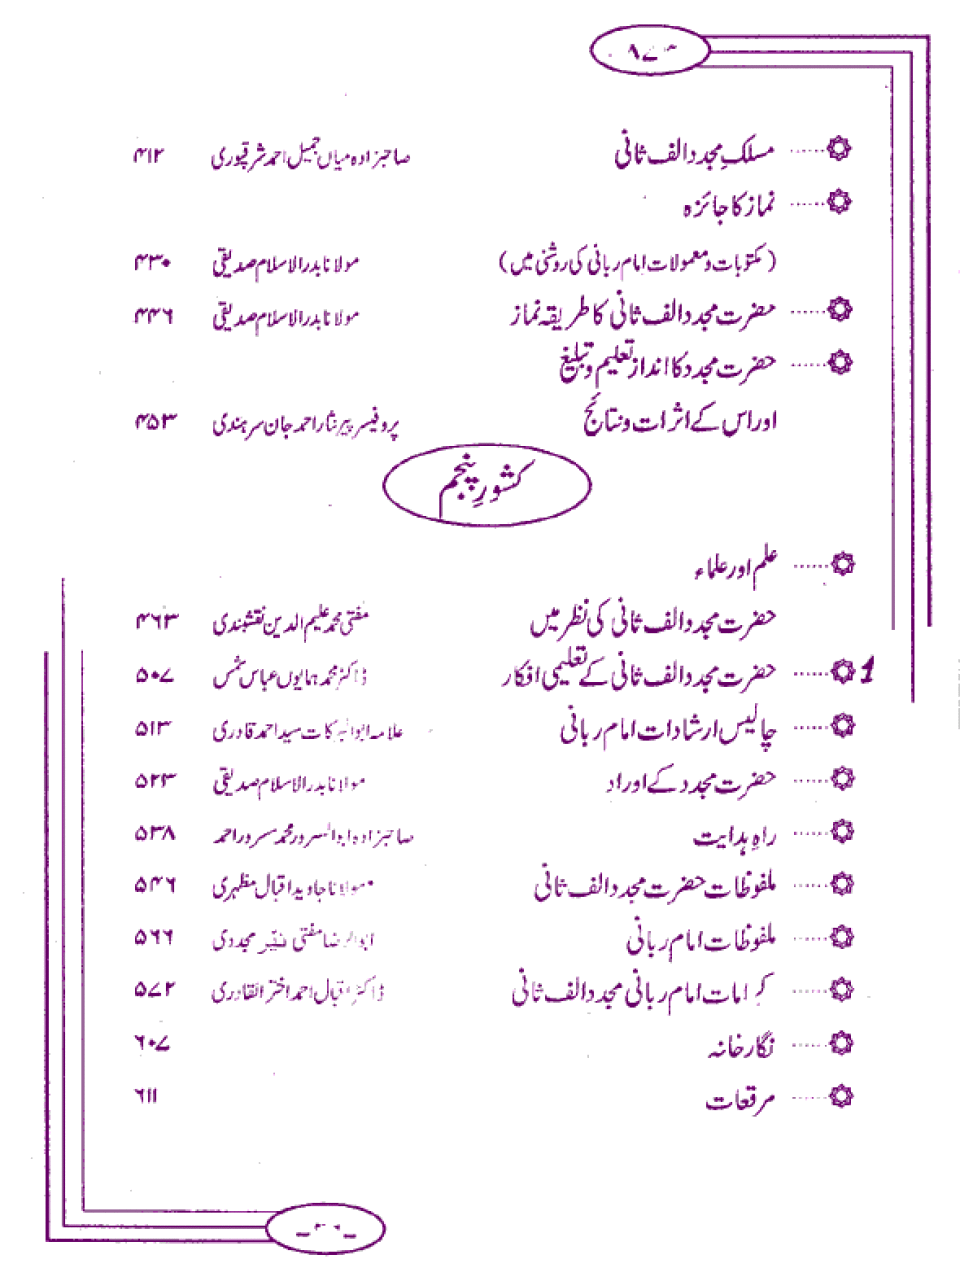 مسلکِ مجدد الف ثانی صاحبزادہ میاں جمیل احمد شرقپوری ۴۱۲
نماز کا جائزہ
(مکتوبات و معمولات امام ربانی کی روشنی میں) مولانا بدر الاسلام صدیقی ۴۳۰
حضرت مجدد الف ثانی کا طریقہ نماز مولانا بدر الاسلام صدیقی ۴۴۶
حضرت مجدد کا انداز تعلیم و تبلیغ
اور اس کے اثرات و نتائج پروفیسر پیر نثار احمد جان سرہندی ۴۵۳
کشورِ پنجم
علم اور علماء
حضرت مجدد الف ثانی کی نظر میں مفتی محمد علیم الدین نقشبندی ۴۶۳
1 حضرت مجدد الف ثانی کے تعلیمی افکار ڈاکٹر محمد ہمایوں عباس شمس ۵۰۷
چالیس ارشادات امام ربانی علامہ ابوالبرکات سید احمد قادری ۵۱۳
حضرت مجدد کے اوراد مولانا بدر الاسلام صدیقی ۵۲۳
راہِ ہدایت صاحبزادہ ابوالسرور محمد مسرور احمد ۵۳۸
ملفوظات حضرت مجدد الف ثانی مولانا جاوید اقبال مظہری ۵۴۶
ملفوظات امام ربانی ابوالرضا مفتی مجددی ۵۶۶
کرامات امام ربانی مجدد الف ثانی ڈاکٹر اقبال احمد اختر القادری ۵۷۲
نگارخانہ ۶۰۷
مرقعات ۶۱۱